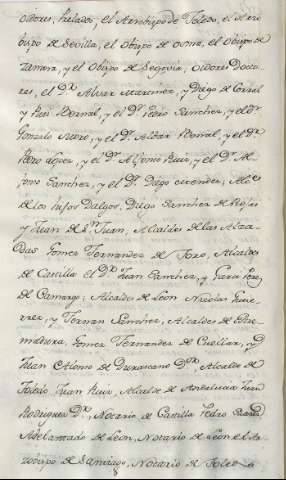 Oidores, Prelados, el Arzobispo de Toledo, el Arzo
bispo de Sevilla, el Obispo de Osma, el Obispo de
Zamora, y el Obispo de Segovia, Oidores Docto
res, el D.r Alvar Martinez, y Diego de Corral
y Ruiz Bernal, y el D.r Pedro Sanchez, y el D.r
Gonzalo Moro, y el D.r Bernal, y el D.r
Pedro y el D.r Alfonso Ruiz, y el D.r Al
fonso Sanchez, y el D.r Diego Alc.es
de los hijos Dalgos, Diego Sanchez de Rojas
y Juan de S.n Juan, Alcaldes de las Alza
Das Gomez Fernandez de Toro, Alcaldes
de Castilla el D.r Juan Sanchez, y Garci
de Camargo; Alcaldes de Leon Nicolas Gutie
rrez, y Fernan Sanchez, Alcaldes de Estre
madura, Gomez Fernandez de Cuellar, y
Juan Alonso de D.r, Alcalde de
Toledo Juan Ruiz, Alcalde de Andalucia Juan
Rodriguez D.r, Notario de Castilla Pedro
Adelantado de Leon, Notario de Leon el Ar
zobispo de Santiago, Notario de Toledo